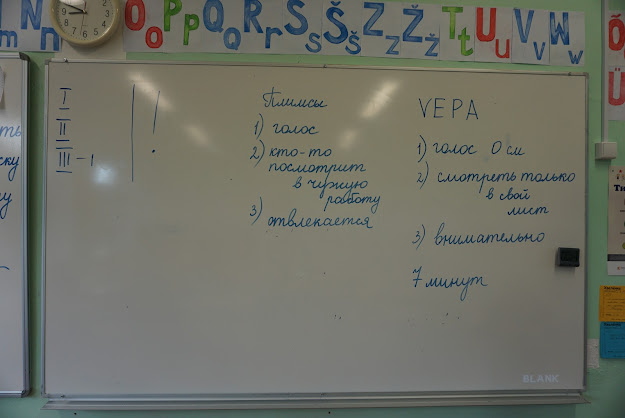 m Nn Oo Pp Qq Rr Ss Šš Zz Žž Tt Uu Vv Ww
Õ
Ü
I
II
III – 1
!
Плимсы
1) голос
2) кто-то
посмотрит
в чужую
работу
3) отвлекается
VEPA
1) голос 0 см
2) смотреть только
в свой
лист
3) внимательно
7 минут
BLANK